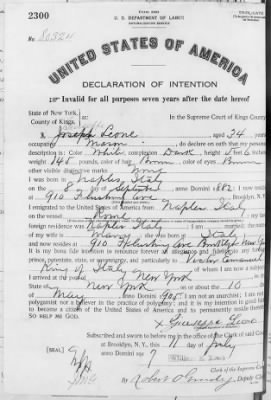 2300
U. S. DEPARTMENT OF LABOR
NATURALIZATION SERVICE
TRIPLICATE
No.
UNITED STATES OF AMERICA
DECLARATION OF INTENTION
Invalid for all purposes seven years after the date hereof
State of New York,
County of Kings,
In the Supreme Court of Kings County
I, Joseph Leone, aged 34 years
occupation Mason, do declare on oath that my personal
description is: Color White, complexion Dark, height 5 feet 6 inches
weight 145 pounds, color of hair Brown, color of eyes Brown
other visible distinctive marks None
I was born in Naples Italy
on the 8 day of September, anno Domini 1882; I now reside
at 910 Flushing Ave, Brooklyn, N.Y.
I emigrated to the United States of America from Naples Italy
on the vessel Rome
foreign residence was Naples Italy; I am married; the name
of my wife is Mary; she was born in Italy
and now resides at 910 Flushing Ave Brooklyn New York
It is my bona fide intention to renounce forever all allegiance and fidelity to any foreign
prince, potentate, state, or sovereignty, and particularly to Victor Emmanuel
King of Italy, of whom I am now a subject
I arrived at the port of New York
State of New York, on or about the 10
of May, anno Domini 1905; I am not an anarchist; I am not a
polygamist nor a believer in the practice of polygamy; and it is my intention in good faith
to become a citizen of the United States of America and to permanently reside therein
SO HELP ME GOD.
x Giuseppe Leone
Subscribed and sworn to before me in the office of the said Court
at Brooklyn, N.Y., this 11 day of July
[SEAL] anno Domini 191
Clerk of the Supreme Court
By Robert
Deputy Clerk